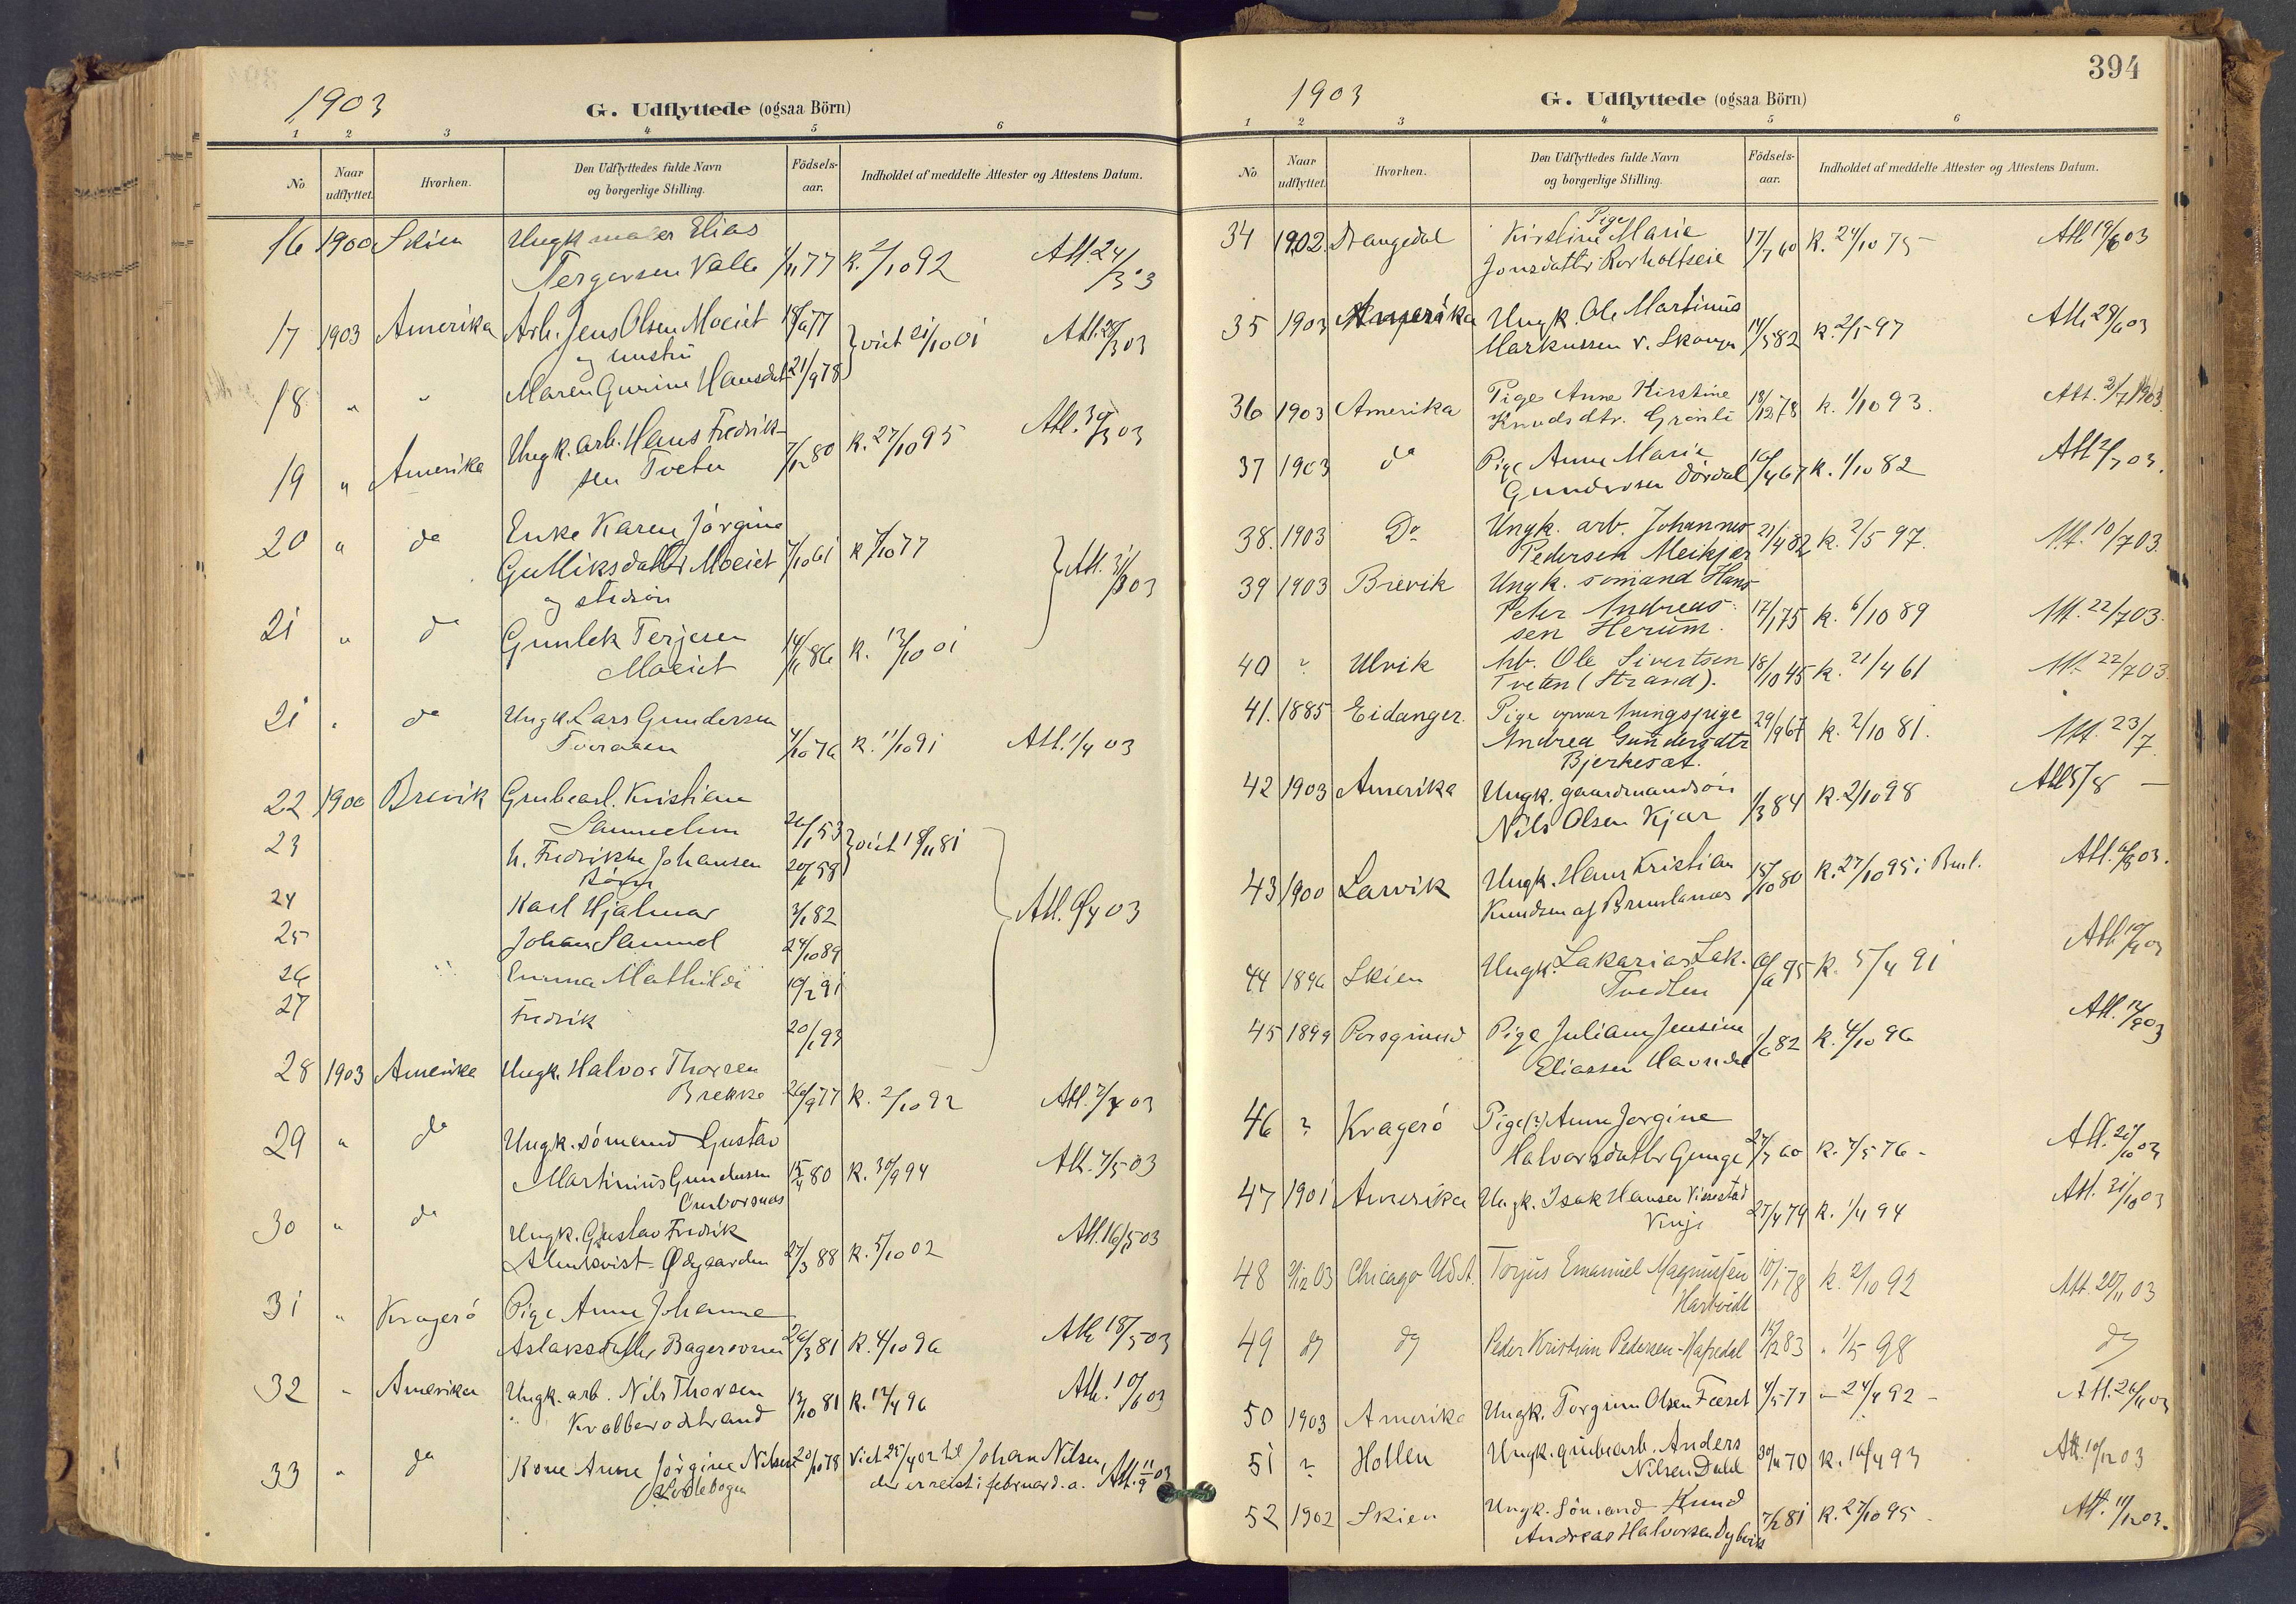 1903
G. Udflyttede (ogsaa Börn)
1 2 3 4 5 6
No Naar udflyttet. Hvorhen. Den Udflyttedes fulde Navn og borgerlige Stilling. Födsels-aar. Indholdet af meddelte Attester og Attestens Datum.
16 1900 Skien Ungk maler Elias
Tergersen Valle 77 k. 2/10 92 Att. 24/3 03
17 1903 Amerika Arb. Jens Olsen Moeiet 18/6 77
og hustru } viet 21/10 01 Att. 28/3 03
18 " " Maren Gurine Hansdat 21/9 78
19 " Amerika Ungk. arb. Hans Fredrik-
sen Tveten 7/12 80 k. 27/10 95 Att. 30/3 03
20 " do Enke Karen Jörgine
Gulliksdatter Moeiet 7/10 61 k 7/10 77
og stedsön } Att. 31/3 03
21 " do Gunlek Terjesen
Moeiet 14/11 86 k. 13/10 01
21 " do Ungk. Lars Gundersen
4/10 76 k. 11/10 91 Att. 1/4 03
22 1900 Brevik Grubearb. Kristian
26/1 53
23 h. Fredrikke Johansen 20/1 58 } viet 18/11 81
Börn
24 Karl Hjalmar 3/1 82 Att. 03
25 Johan Samuel 24/10 89
26 Emma Mathilde 19/2 91
27 Fredrik 20/1 93
28 1903 Amerika Ungk. Halvor Thorsen
Brekke 26/9 77 k. 2/10 92 Att. 7/4 03
29 " do Ungk. sömand Gustav
Martinius Gundersen 15/4 80 k. 30/9 94 Att. 7/5 03
Omborsnæs
30 " do Ungk. Gustav Fredrik
Almkvist - Ødegaarden 27/3 88 k. 5/10 02 Att. 16/5 03
31 " Kragerö Pige Anne Johanne
Aslaksdatter 26/3 81 k. 4/10 96 Att. 18/5 03
32 " Amerika Ungk. arb. Nils Thorsen
Krabberödstrand 13/10 81 k. 12/4 96 Att. 10/6 03
33 " do Kone Anne Jörgine Nilsen 20/10 78 Viet 25/4 02 til Johan Nilsen,
der er reist i februar d. a. Att. 11/9 03
394
1903
G. Udflyttede (ogsaa Börn)
1 2 3 4 5 6
No Naar udflyttet. Hvorhen. Den Udflyttedes fulde Navn og borgerlige Stilling. Födsels-aar. Indholdet af meddelte Attester og Attestens Datum.
34 1902. Drangedal Pige
Kirstine Marie
Jonsdatter Rorholtseie 17/7 60 k. 24/10 75 - Att 19/6 03
35 1903 Amerika Ungk. Ole Martinius
Markussen v. 14/5 82 k. 2/5 97 Att. 29/6 03
36 1903 Amerika Pige Anne Kirstine
Knudsdtr. Grönli 18/12 78 k. 1/10 93. Att. 2/7 1903.
37 1903 do Pige Anne Marie
Gundersen Dördal 16/4 67 k. 1/10 82 Att 2/7 03.
38. 1903 Do Ungk. arb. Johannes
Pedersen Meikjær 21/4 82 k. 2/5 97. Att. 10/7 03.
39 1903 Brevik Ungk. sömand Hans
Peter Andreas-
sen Herum. 17/1 75 k. 6/10 89 Att. 22/7 03.
40 " Ulvik Arb. Ole Sivertsen
Tveten (Strand). 18/10 45 k. 21/4 61 Att. 22/7 03
41. 1885 Eidanger. Pige opvartningspige
Andrea Gundersdtr 29/9 67 k. 2/10 81. Att. 23/7.
Bjerkesæt.
42 1903 Amerika Ungk. gaardmandsön
Nils Olsen Kjær 1/3 84 k. 2/10 98 Att 5/8 -
43 1900 Larvik Ungk. Hans Kristian
Knudsen af Brunlanæs 15/10 80 k. 27/10 95 i Brul. Att. 03.
44 1896 Skien Ungk. Zakarias Zak.
75 k. 5/4 91 Att. 03
45 1899 Porsgrund Pige Juliane Jensine
Eliassen 1/6 82 k. 4/10 96 Att. 12/9 03
46 ? Kragerö Pige (?) Anne Jorgine
Halvorsdatter 27/7 60 k. 7/5 76 - Att. 21/10 03
47 1901 Amerika Ungk. Isak Hansen
Vinje 27/4 79 k. 1/4 94 Att. 31/10 03
48 2/12 03 Chicago USA. Torjus Emanuel Magnussen
10/1 78 k. 2/10 92 Att. 20/11 03
49 do do Peder Kristian Pedersen - 14/12 83 " 1/5 98 do
50 1903 Amerika Ungk. Torgrim Olsen Feeset 4/5 77 " 24/4 92 - Att. 26/11 03
51 ? Hollen Ungk. grubearb. Anders
Nilsen Dahl 30/11 70 k. 16/4 93 Att. 10/12 03
52 1902 Skien Ungk. Sömand Knud
Andreas Halvorsen Dybvik 7/2 81 k. 27/10 95 - Att. 11/12 03.